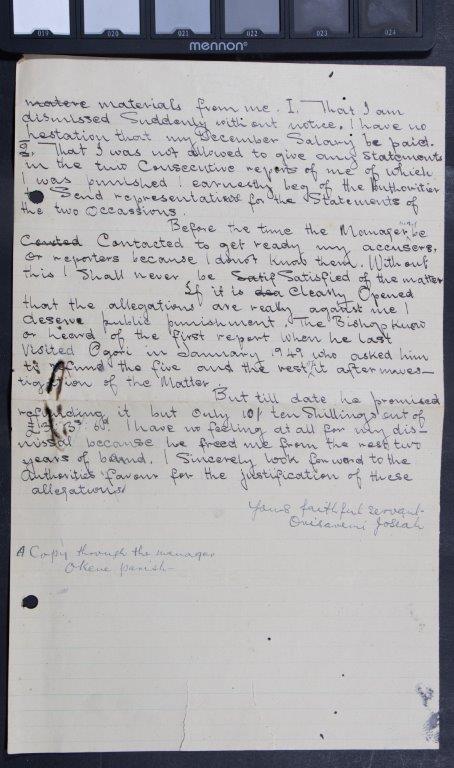 019 020 021 022 023 024
mennon
matere materials from me. I. That I am
dismissed Suddenly without notice. I have no
hestation that my December Salary be paid.
2. That I was not allowed to give any Statements
in the two Consecutive reports of me of which
I was punished I earnestly beg of the Authorities
to Send representatives for the Statements of
the two Occassions.
Before the time the Manager may be
Contacted to get ready my accusers,
or reporters because I donot know them. Without
this I Shall never be Satif Satisfied of the matter
If it is clearly Opened
that the allegations are really against me I
deserve public punishment. The Bishop know
or heard of the first report when he last
Visited Ogori in January 1949 who asked him
to refund the five and the rest after inves-
tigation of the Matter.
But till date he promised
refunding it but only 10/ ten Shillings out of
I have no feeling at all for my dis-
missal because he freed me from the rest two
years of bound. I Sincerely look forward to the
Authorities favour for the justification of these
allegations
Yours faithful servant
Josiah
A Copy through the manager
Okene parish